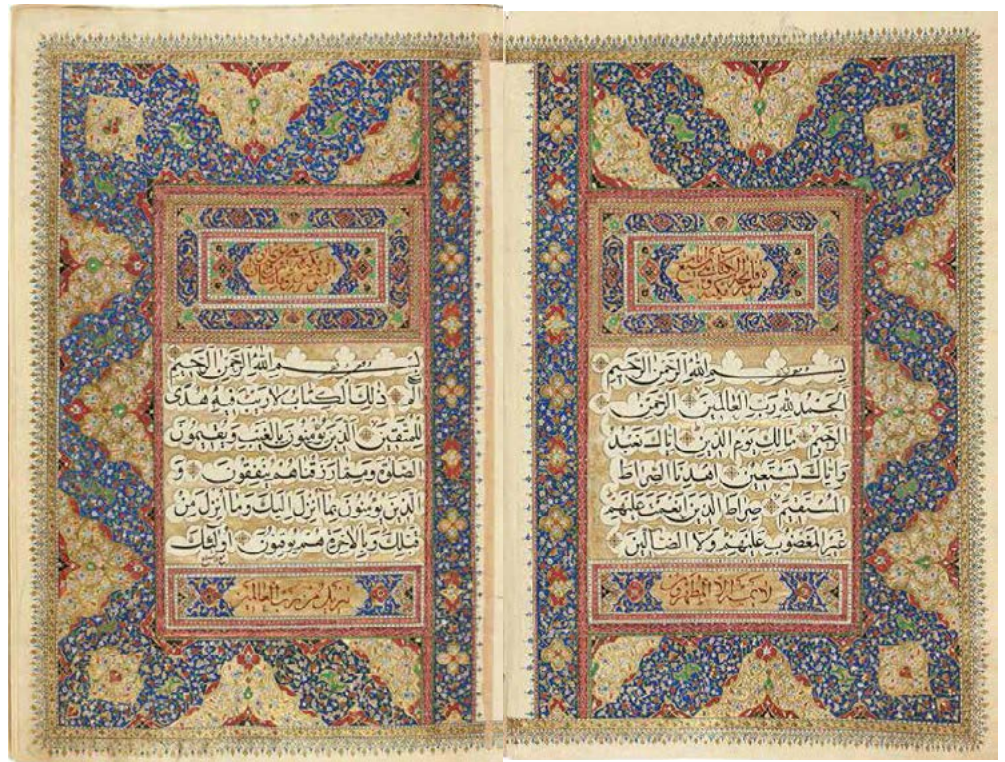 فاتحة الكتاب سبع
بِسْمِ اللهِ الرَّحْمٰنِ الرَّحِيمِ
اَلْحَمْدُ لِلّٰهِ رَبِّ الْعَالَمِينَ الرَّحْمٰنِ
الرَّحِيمِ مَالِكِ يَوْمِ الدِّينِ اِيَّاكَ نَعْبُدُ
وَاِيَّاكَ نَسْتَعِينُ اِهْدِنَا الصِّرَاطَ
الْمُسْتَقِيمَ صِرَاطَ الَّذِينَ اَنْعَمْتَ عَلَيْهِمْ
غَيْرِ الْمَغْضُوبِ عَلَيْهِمْ وَلَا الضَّالِّينَ
لا يمسه الا المطهرون
بِسْمِ اللهِ الرَّحْمٰنِ الرَّحِيمِ
الم ذٰلِكَ الْكِتَابُ لَا رَيْبَ فِيهِ هُدًى
لِلْمُتَّقِينَ الَّذِينَ يُؤْمِنُونَ بِالْغَيْبِ وَيُقِيمُونَ
الصَّلٰوةَ وَمِمَّا رَزَقْنَاهُمْ يُنْفِقُونَ وَ
الَّذِينَ يُؤْمِنُونَ بِمَا اُنْزِلَ اِلَيْكَ وَمَا اُنْزِلَ مِنْ
قَبْلِكَ وَبِالْاٰخِرَةِ هُمْ يُوقِنُونَ اُولٰئِكَ
تنزيل من رب العالمين